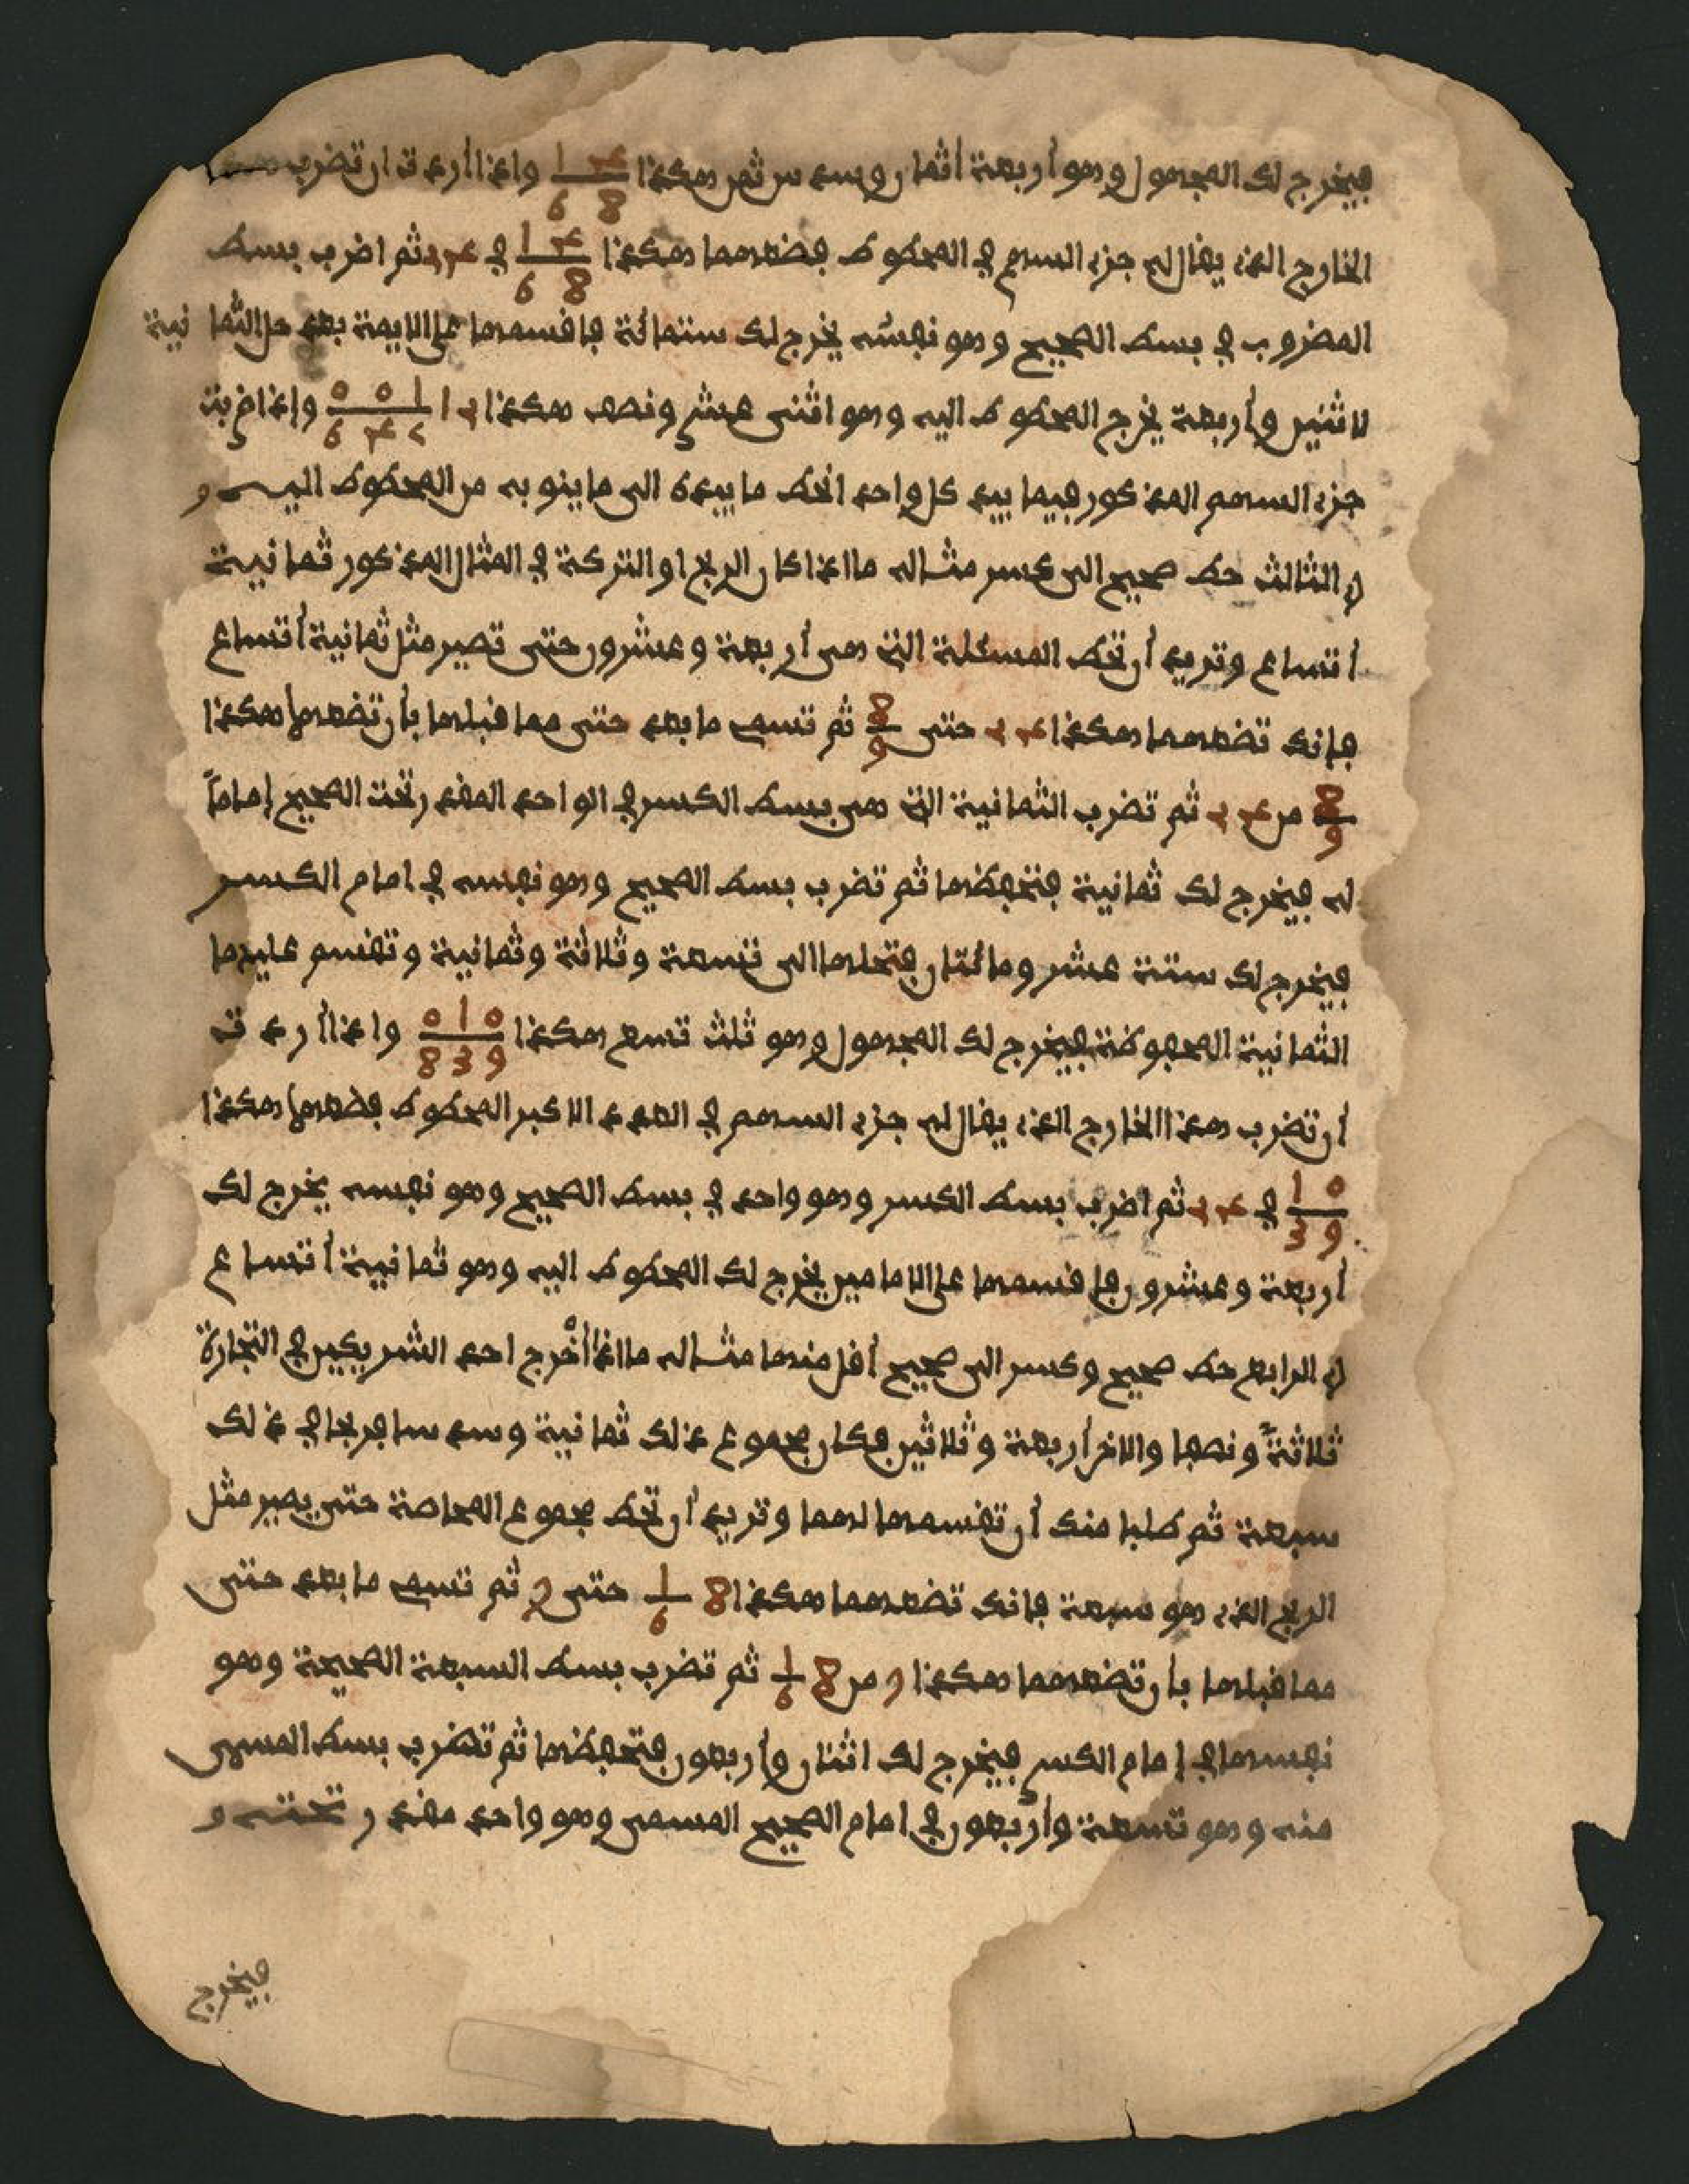 فيخرج لك المجهول وهو أربعة أثمان وسدس ثمن هكذا ١ ٤ / 6 8 وإذا أردت ان تضرب
الخارج الذي يقال له جزء السهم في المحطوط فضعهما هكذا ١ ٤ / 6 8 في ٢٤ ثم اضرب بسط
المضروب في بسط الصحيح وهو نفسه يخرج لك ستمائة فاقسمها على الايمة بعد حل الثما نية
لاثنين وأربعة يخرج المحطوط اليه وهو اثنى عشر ونصف هكذا ١٢ ١ ٥ ٥ / ٢ ٤ 6 وإذا ضربت
جزء السهم المذكور فيما بيد كل واحد انحط ما بيده الى ما ينوبه من المحطوط اليه و
ن الثالث حط صحيح الى كسر مثاله ما اذا كان الربح او التركة في المثال المذكور ثمانية
أتساع وتريد أن تحط المسئلة التي هى أربعة وعشرون حتى تصير مثل ثمانية أتساع
فإنك تضعهما هكذا ٢٤ حتى 8 / 9 ثم تسمى ما بعد حتى مما قبلها بأن تضعها هكذا
8 / 9 من ٢٤ ثم تضرب الثمانية التي هى بسط الكسر في الواحد المقدر تحت الصحيح إماماً
له فيخرج لك ثمانية فتحفظها ثم تضرب بسط الصحيح وهو نفسه في امام الكسر
فيخرج لك ستة عشر ومائتان فتحلها الى تسعة وثلاثة وثمانية وتقسم عليها
الثمانية المحفوظة فيخرج لك المجهول وهو ثلث تسع هكذا ٥ ١ ٥ / 8 3 9 وإذا أردت
أن تضرب هذا الخارج الذي يقال له جزء السهم في العدد الاكبر المحطوط فضعها هكذا
١ ٥ / 3 9 في ٢٤ ثم اضرب بسط الكسر وهو واحد في بسط الصحيح وهو نفسه يخرج لك
أربعة وعشرون فاقسمها على الامامين يخرج لك المحطوط اليه وهو ثمانية أتساع
ن الرابع حط صحيح وكسر الى صحيح أقل منهما مثاله ما اذا أخرج احد الشريكين في التجارة
ثلاثة ونصفا والاخر أربعة وثلاثين فكان مجموع ذلك ثمانية وسدسا فربحا في ذلك
سبعة ثم طلبا منك أن تقسمها لهما وتريد أن تحط مجموع المحاصة حتى يصير مثل
الربح الذي هو سبعة فإنك تضعهما هكذا 8 ١ / 6 حتى 7 ثم تسمى ما بعد حتى
مما قبلها بأن تضعهما هكذا 7 من 8 ١ / 6 ثم تضرب بسط السبعة الصحيحة وهو
نفسها في إمام الكسر فيخرج لك اثنان وأربعون فتحفظها ثم تضرب بسط المسمى
منه وهو تسعة وأربعون في امام الصحيح المسمى وهو واحد مقدر تحته و
فيخرج